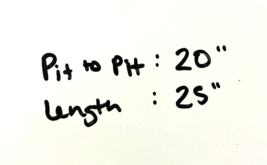 Pit to Pit : 20"
Length : 25"